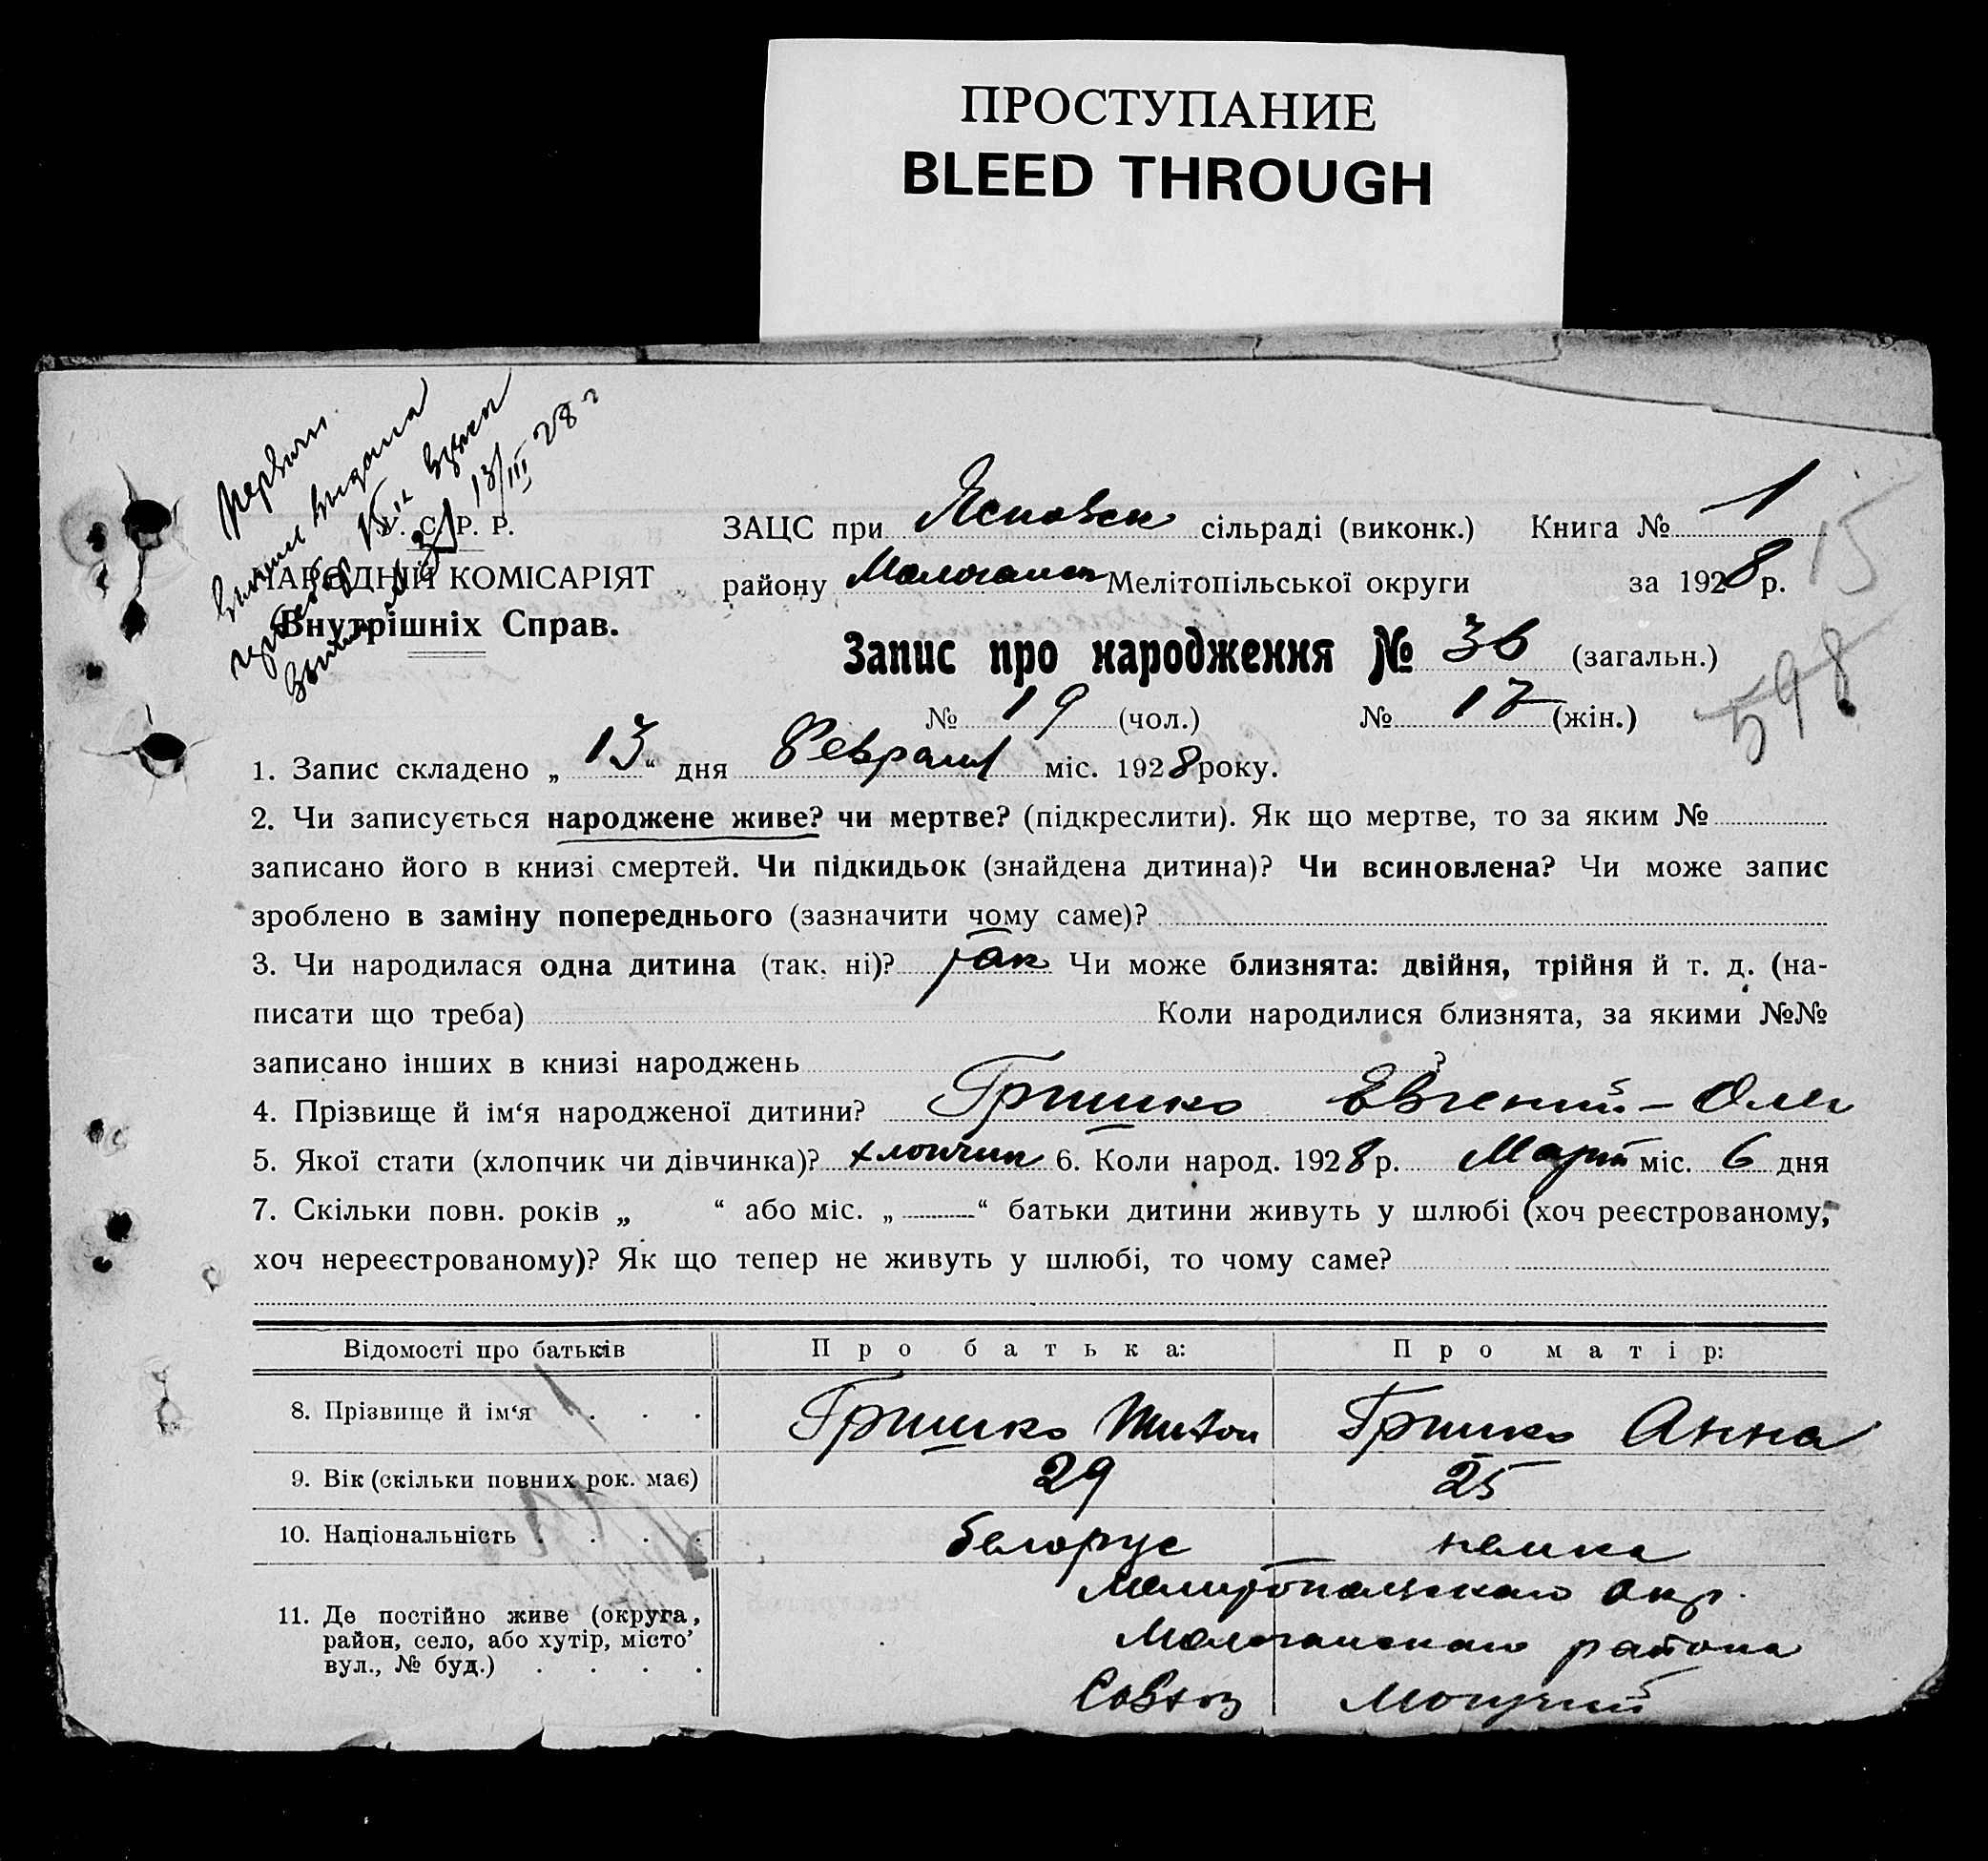 ПРОСТУПАНИЕ
BLEED THROUGH
У. С. Р. Р.
НАРОДНІЙ КОМІСАРІЯТ
Внутрішніх Справ.
13/III 28 г
ЗАЦС при сільраді (виконк.) Книга № 1
району Мелітопільської округи за 1928 р.
15
Запис про народження № 36 (загальн.)
598
№ 19 (чол.) № 17 (жін.)
1. Запис складено „ 13 “ дня Февраля міс. 1928 року.
2. Чи записується народжене живе? чи мертве? (підкреслити). Як що мертве, то за яким №
записано його в книзі смертей. Чи підкидьок (знайдена дитина)? Чи всиновлена? Чи може запис
зроблено в заміну попереднього (зазначити чому саме)?
3. Чи народилася одна дитина (так, ні)? так Чи може близнята: двійня, трійня й т. д. (на-
писати що треба) Коли народилися близнята, за якими №№
записано інших в книзі народжень ?
4. Прізвище й ім‘я народженої дитини? Гришко Евгений-
5. Якої стати (хлопчик чи дівчинка)? хлопчик 6. Коли народ. 1928 р. Март міс. 6 дня
7. Скільки повн. років „ “ або міс. „ “ батьки дитини живуть у шлюбі (хоч реєстрованому,
хоч нереєстрованому)? Як що тепер не живуть у шлюбі, то чому саме?
Відомості про батьків Про батька: Про матір:
8. Прізвище й ім‘я . . . Гришко Гришко Анна
9. Вік (скільки повних рок. має) 29 25
10. Національність . . . . белорус немка
11. Де постійно живе (округа, район, село, або хутір, місто, вул., № буд.) . . . .
Мелитопольского окр.
Молочанского района
Совхоз Могучий